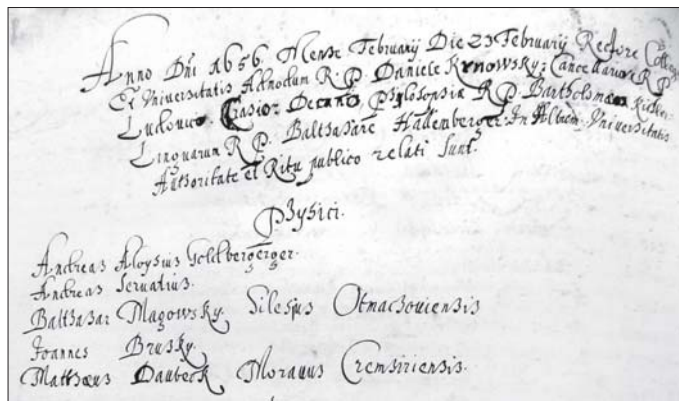 Anno Dni 1656 Mense Februarij Die 23 Februarij Rectore Collegij
Et Universitatis Admodum R P. Daniele Krynowsky: Cancellario R P
Ludovico Crasior Decano Philosophiæ R P. Bartholomæo
Linguarum R P. Balthasare Hadenberger. In Album Universitatis
Authoritate et Ritu publico relati sunt.
Physici.
Andreas Aloysius Goldbergerger.
Andreas Servatius.
Balthasar Magowsky. Silesius Otmachoviensis
Joannes Brusky.
Matthæus Daubeck Moravus Cremsiriensis.